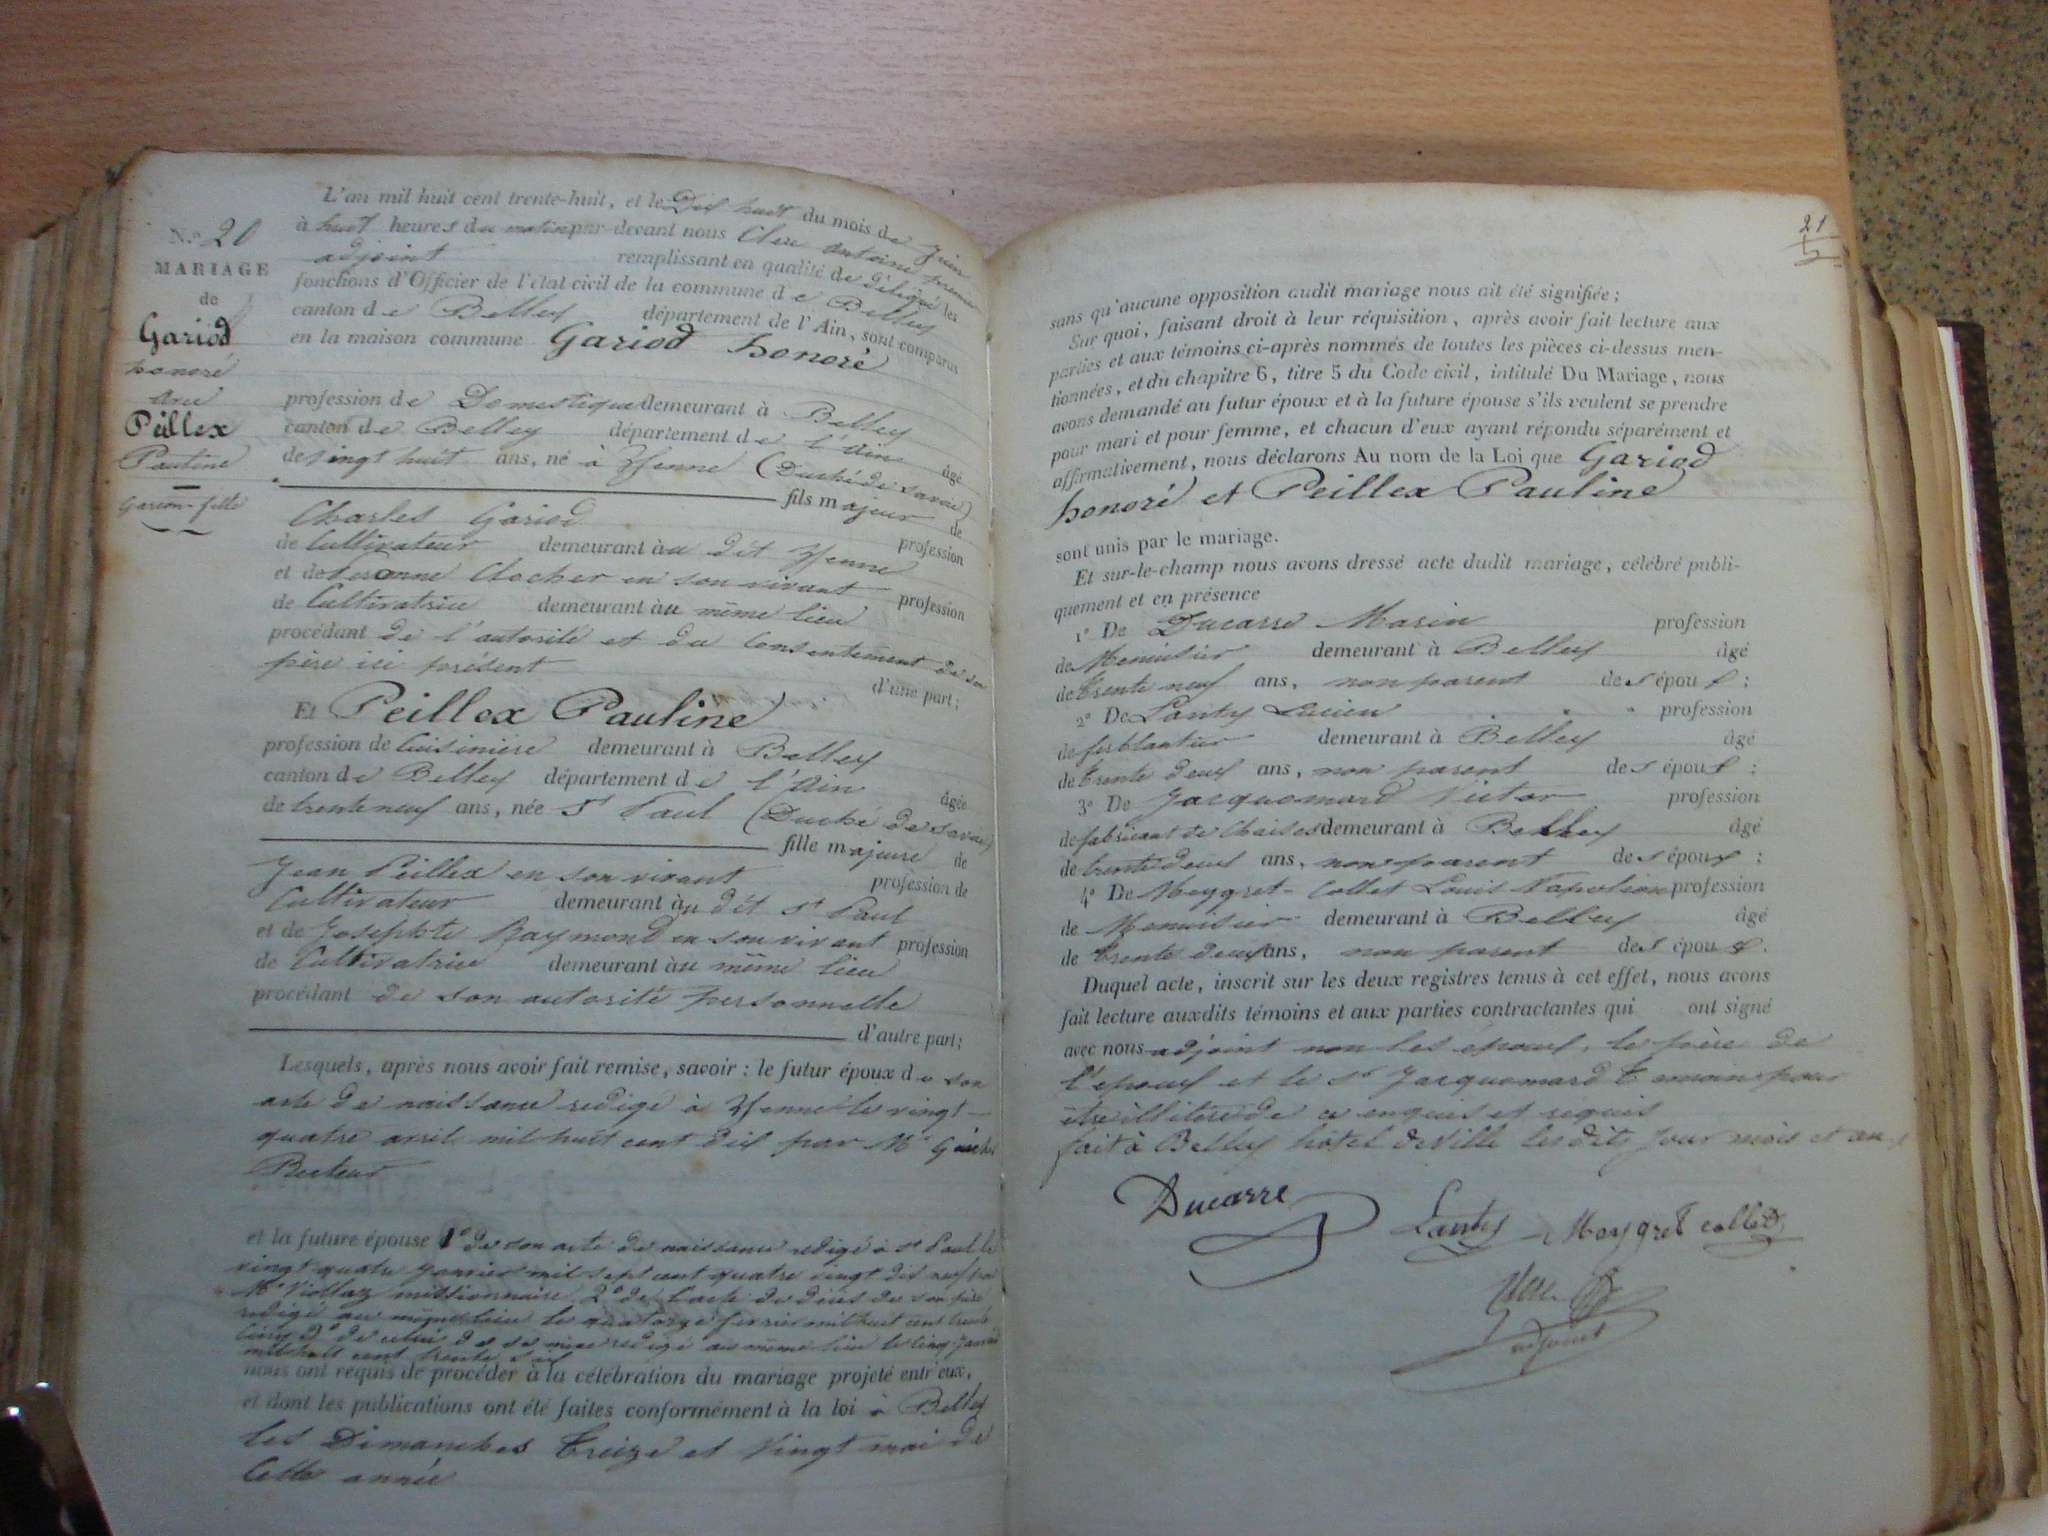 N.º 20
MARIAGE
de
Gariod
honoré
avec
Peillex
Pauline
Garçon - fille
L'an mil huit cent trente-huit, et le Dix huit du mois de Juin
à huit heures du matin par-devant nous Clerc antoine premier
adjoint remplissant en qualité de délégué les
fonctions d'Officier de l'état civil de la commune de Belley
canton de Belley département de l'Ain, sont comparus
en la maison commune Gariod honoré
profession de Domestique demeurant à Belley
canton de Belley département de l'Ain âgé
de vingt huit ans, né à Yenne (Duché de Savoie)
fils majeur de
Charles Gariod profession
de Cultivateur demeurant au dit Yenne
et de Clocher en son vivant profession
de Cultivatrice demeurant au même lieu
procédant de l'autorité et du Consentement de son
père ici présent d'une part;
Et Peillex Pauline
profession de Cuisinière demeurant à Belley
canton de Belley département de l'Ain âgée
de trente neuf ans, née St Paul (Duché de Savoie)
fille majeure de
Jean Peillex en son vivant profession de
Cultivateur demeurant au dit St Paul
et de Josephte Raymond en son vivant profession
de Cultivatrice demeurant au même lieu
procédant de son autorité personnelle
d'autre part;
Lesquels, après nous avoir fait remise, savoir: le futur époux de son
acte de naissance redigé à Yenne le vingt-
quatre avril mil huit cent dix par Mr
Recteur
et la future épouse 1º de son acte de naissance redigé à St Paul le
vingt quatre Janvier mil sept cent quatre vingt dix neuf par
Mr Viollaz missionnaire, 2º de l'acte de décès de son père
redigé au même lieu le quatorze fevrier mil huit cent trente
cinq 3º de celui de sa mère redigé au même lieu le cinq Janvier
mil huit cent trente six
nous ont requis de procéder à la célébration du mariage projeté entr'eux,
et dont les publications ont été faites conformément à la loi à Belley
les Dimanches treize et vingt mai de
Cette année
21
sans qu'aucune opposition audit mariage nous ait été signifiée;
Sur quoi, faisant droit à leur réquisition, après avoir fait lecture aux
parties et aux témoins ci-après nommés de toutes les pièces ci-dessus men-
tionnées, et du chapitre 6, titre 5 du Code civil, intitulé Du Mariage, nous
avons demandé au futur époux et à la future épouse s'ils veulent se prendre
pour mari et pour femme, et chacun d'eux ayant répondu séparément et
affirmativement, nous déclarons Au nom de la Loi que Gariod
honoré et Peillex Pauline
sont unis par le mariage.
Et sur-le-champ nous avons dressé acte dudit mariage, célébré publi-
quement et en présence
1º De Ducarre Marin profession
de Menuisier demeurant à Belley âgé
de trente neuf ans, non parent des époux;
2º De Lanty Lucien profession
de ferblantier demeurant à Belley âgé
de trente deux ans, non parent des époux;
3º De Jacquemard Victor profession
de fabricant de Chaises demeurant à Belley âgé
de trente deux ans, non parent des époux;
4º De Meygret-Collet Louis Napoléon profession
de Menuisier demeurant à Belley âgé
de trente deux ans, non parent des époux.
Duquel acte, inscrit sur les deux registres tenus à cet effet, nous avons
fait lecture auxdits témoins et aux parties contractantes qui ont signé
avec nous adjoint non les epoux, le père de
l'epoux et le Sr Jacquemard temoin pour
être illiteré de ce enquis et requis
fait à Belley hôtel de Ville les dits Jour mois et an
Ducarre
Lanty
Meygret collet
adjoint